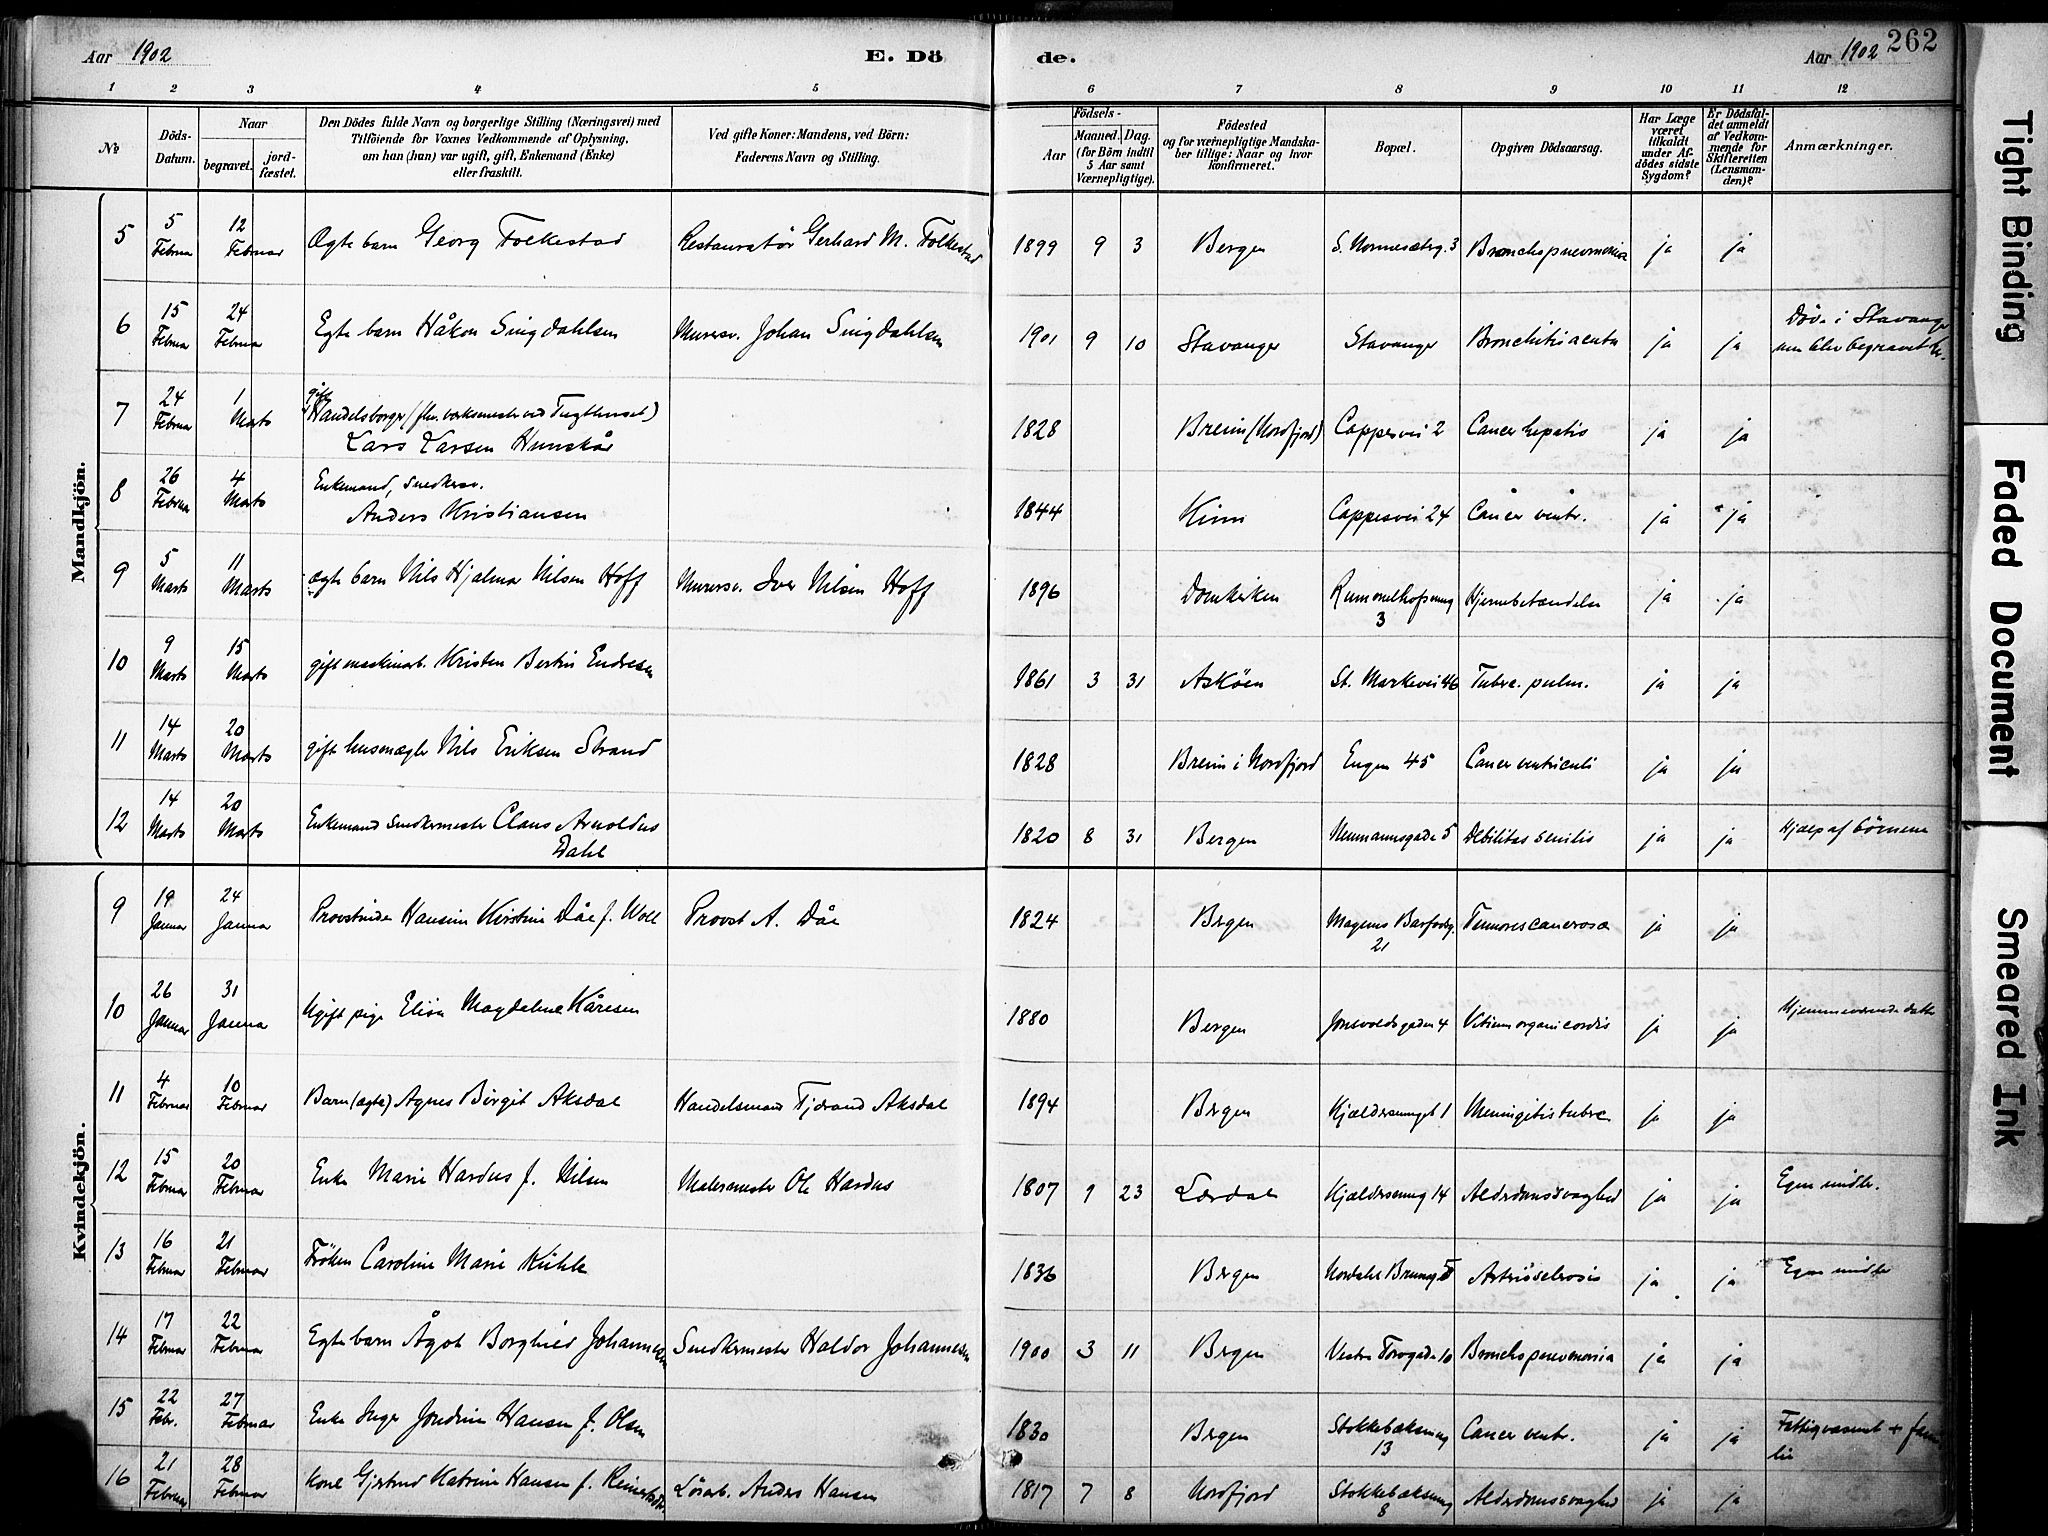 Aar 1902
E. Dö
de.
Aar 1902
262
1 2 3 4 5 6 7 8 9 10 11 12
№
Döds-
Datum.
Naar
begravet.
jord-
fæstet.
Den Dödes fulde Navn og borgerlige Stilling (Næringsvei) med
Tilföiende for Voxnes Vedkommende af Oplysning,
om han (hun) var ugift, gift, Enkemand (Enke)
eller fraskilt.
Ved gifte Koner: Mandens, ved Börn:
Faderens Navn og Stilling.
Födsels-
Aar
Maaned. Dag.
(for Börn indtil
5 Aar samt
Værnepligtige).
Födested
og for værnepligtige Mandska-
ber tillige: Naar og hvor
konfirmeret.
Bopæl.
Opgiven Dödsaarsag.
Har Læge
været
tilkaldt
under Af-
dödes sidste
Sygdom?
Er Dödsfal-
det anmeldt
af Vedkom-
mende for
Skifteretten
(Lensman-
den)?
Anmærkninger.
Mandkjön.
5 5 Februar 12 Februar Ægte barn Georg Folkestad Restauratör Gerhard M. Folkestad 1899 9 3 Bergen 3 Bronchopneumonia ja ja
6 15 Februar 24 Februar Egte barn Håkon Singdahlsen Murersv. Johan Singdahlsen 1901 9 10 Stavanger Stavanger Bronchitis acuta ja ja Död i Stavanger
men blev begravet h.
7 24 Februar 1 Marts gift
Handelsborger (fhv. værksmester ved Tugthuset)
Lars Larsen Hunskår 1828 Breim (Nordfjord) Cappesvei 2 Cancer hepatis ja ja
8 26 Februar 4 Marts Enkemand, snedkersv.
Anders Kristiansen 1844 Kinn Cappesvei 24 Cancer ventr. ja ja
9 5 Marts 11 Marts ægte barn Nils Hjalmar Nilsen Hoff Murersv. Iver Nilsen Hoff 1896 Domkirken Rummelhofsmug
3 Hjernebetændelse ja ja
10 9 Marts 15 Marts gift maskinarb. Kristen Bertin Endresen 1861 3 31 Asköen St. Markevei 46 Tubrc. pulm. ja ja
11 14 Marts 20 Marts gift husmægler Nils Eriksen Strand 1828 Breim i Nordfjord Engen 45 Cancer ventriculi ja ja
12 14 Marts 20 Marts Enkemand snedkermester Claus Arnoldus
Dahl 1820 8 31 Bergen Neumannsgade 5 Debilitas senilis ja ja Hjælp af börnene
Kvindekjön.
9 19 Januar 24 Januar Provstinde Hansine Kirstine Dåe f. Woll Provst A. Dåe 1824 Bergen Magnus Barfodsg.
21 Tumores cancerosæ ja ja
10 26 Januar 31 Januar Ugift pige Elisa Magdalene Kåresen 1880 Bergen Jonsvoldsgaden 4 Vitium organi cordis ja ja Hjemmeværende datter
11 4 Februar 10 Februar Barn (ægte) Agnes Birgit Aksdal Handelsmand Tjærand Aksdal 1894 Bergen Kjældersmuget 1 Meningitis tubrc ja ja
12 15 Februar 20 Februar Enke Marie Hardus f. Nilsen Malermester Ole Hardus 1807 9 23 Lærdal Kjældersmug 14 Alderdomssvaghed ja ja Egne midler.
13 16 Februar 21 Februar Fröken Caroline Marie Kühle 1836 Bergen Nordahl Brunsg. Arteriosclerosis ja ja Egne midler
14 17 Februar 22 Februar Egte barn Ågot Borghild Johannesen Snedkermester Haldor Johannesen 1900 3 11 Bergen Vestre Torvgade 10 Bronchopneumonia ja ja
15 22 Febr. 27 Februar Enke Inger Jondrine Hansen f. Olsen 1830 Bergen Stokkebæksmug
13 Cancer ventr. ja ja Fattigvæsenet + fami
lie
16 21 Februar 28 Februar Kone Gjertrud Katrine Hansen f. Lösarb. Anders Hansen 1817 7 8 Nordfjord Stokkebæksmug
8 Alderdomssvaghed ja ja
Tight Binding
Faded Document
Smeared Ink